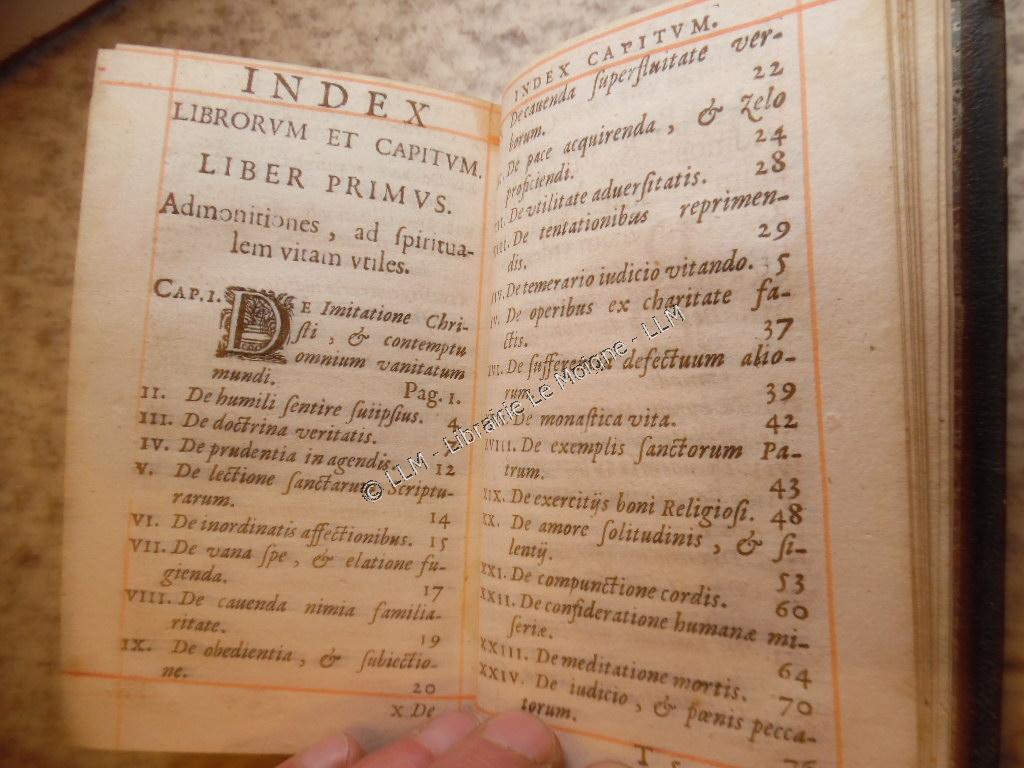 INDEX
LIBRORVM ET CAPITVM.
LIBER PRIMVS.
Admonitiones, ad spiritua-
lem vitam vtiles.
CAP. I. DE Imitatione Chri-
sti, & contemptu
omnium vanitatum
mundi. Pag. 1.
II. De humili sentire suiipsius. 4
III. De doctrina veritatis.
IV. De prudentia in agendis. 12
V. De lectione sanctarum Scriptu-
rarum. 14
VI. De inordinatis affectionibus. 15
VII. De vana spe, & elatione fu-
gienda. 17
VIII. De cauenda nimia familia-
ritate. 19
IX. De obedientia, & subiectio-
ne. 20
X De
INDEX CAPITVM.
De cauenda superfluitate ver-
borum. 22
De pace acquirenda, & Zelo
proficiendi. 24
De vtilitate aduersitatis. 28
De tentationibus reprimen-
dis. 29
De temerario iudicio vitando. 5
De operibus ex charitate fa-
ctis. 37
De sufferentia defectuum alio-
rum. 39
De monastica vita. 42
De exemplis sanctorum Pa-
trum. 43
XIX. De exercitijs boni Religiosi. 48
XX. De amore solitudinis, & si-
lentij. 53
XXI. De compunctione cordis. 60
XXII. De consideratione humanæ mi-
seriæ. 64
XXIII. De meditatione mortis. 70
XXIV. De iudicio, & pœnis pecca-
torum. 76
© LLM - Librairie Le Moigne - LLM